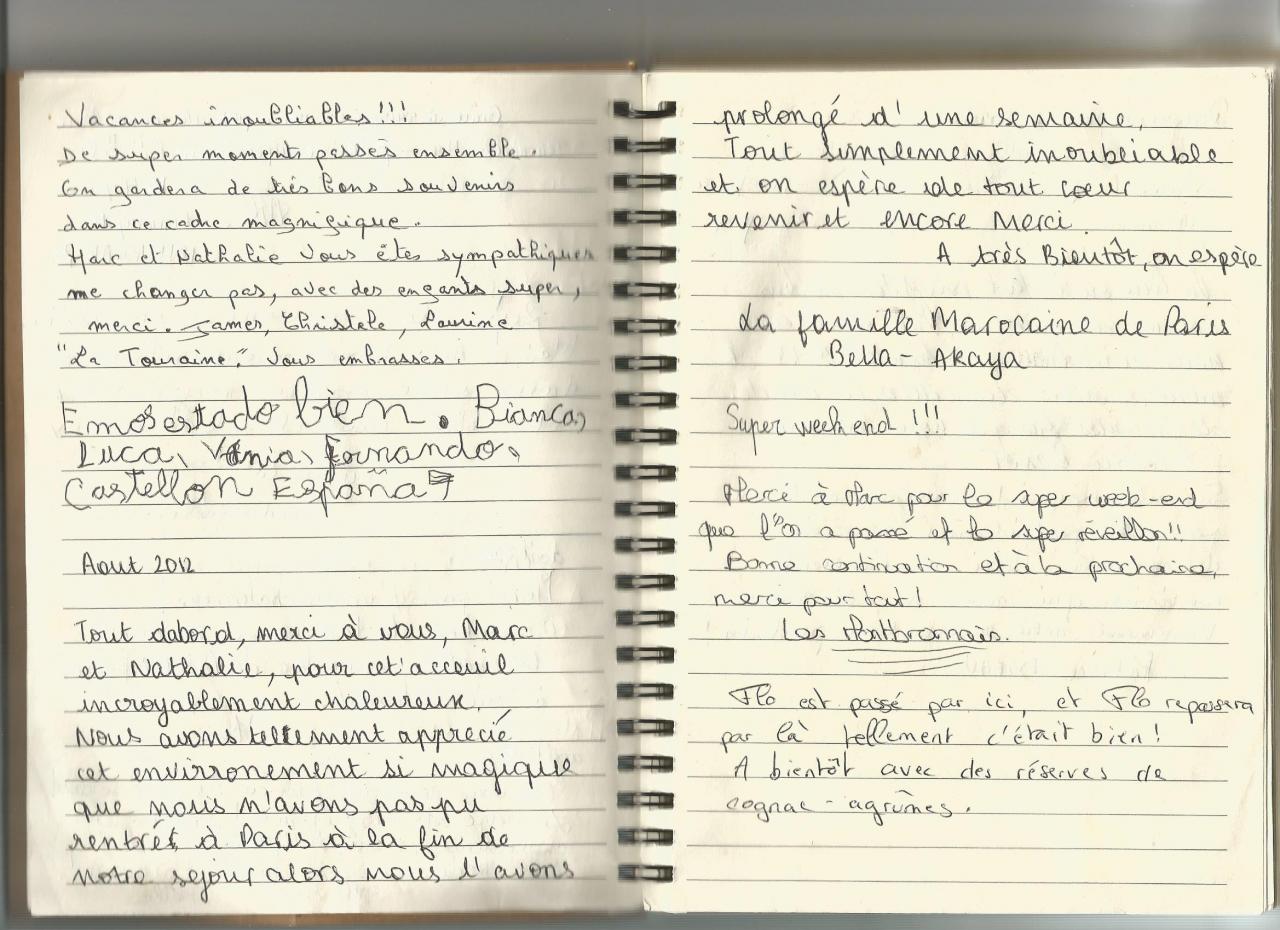 Vacances inoubliables!!!
De super moments passés ensemble.
On gardera de très bons souvenirs
dans ce cadre magnifique.
Marc et Nathalie vous êtes sympathiques
ne changer pas, avec des enfants super,
merci. James, Christele, Laurine
"La Touraine." Vous embrasses.
Emos estado bien. Bianca,
Luca, Vania, Fernando,
Castellon España
Aout 2012
Tout dabord, merci à vous, Marc
et Nathalie, pour cet acceuil
incroyablement chaleureux.
Nous avons tellement apprecié
cet environement si magique
que nous n'avons pas pu
rentrés à Paris à la fin de
notre sejour alors nous l'avons
prolongé d'une semaine.
Tout simplement inoubliable
et on espère de tout coeur
revenir et encore Merci.
A très Bientôt, on espère
La famille Marocaine de Paris
Bella - Akaya
Super week end!!!
Merci à Marc pour le super week-end
que l'on a passé et le super réveillon!!
Bonne continuation et à la prochaine,
merci pour tout!
Les
Flo est passé par ici, et Flo repassera
par là tellement c'était bien!
A bientôt avec des réserves de
cognac - agrûmes.